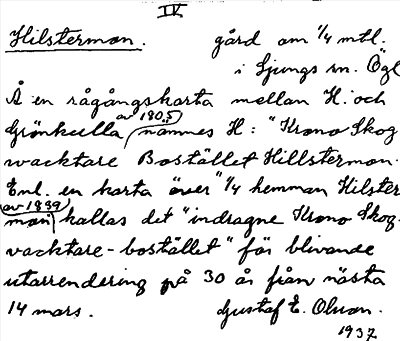 IV
Hilstermon. gård om 1/4 mtl.
i Ljungs sn. Ögl
Å en rågångskarta mellan H. och
Grönkulla av 1805 nämnes H: "Krono Skog
wacktare Bostället Hillstermon.
Enl. en karta över 1/4 hemman Hilster
mon av 1839 kallas det "indragne Krono Skog-
vacktare-bostället" för blivande
utarrendering på 30 år från nästa
14 mars. Gustaf E. Olson.
1937